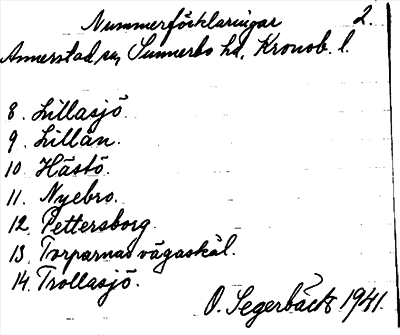 Nummerförklaringar 2.
Annerstad sn, Sunnerbo hd, Kronob. l.
8. Lillasjö.
9. Lillån.
10 Hästö.
11. Nyebro.
12. Pettersborg.
13. Torparnas vägaskäl.
14. Trollasjö.
O. Segerbäck 1941.